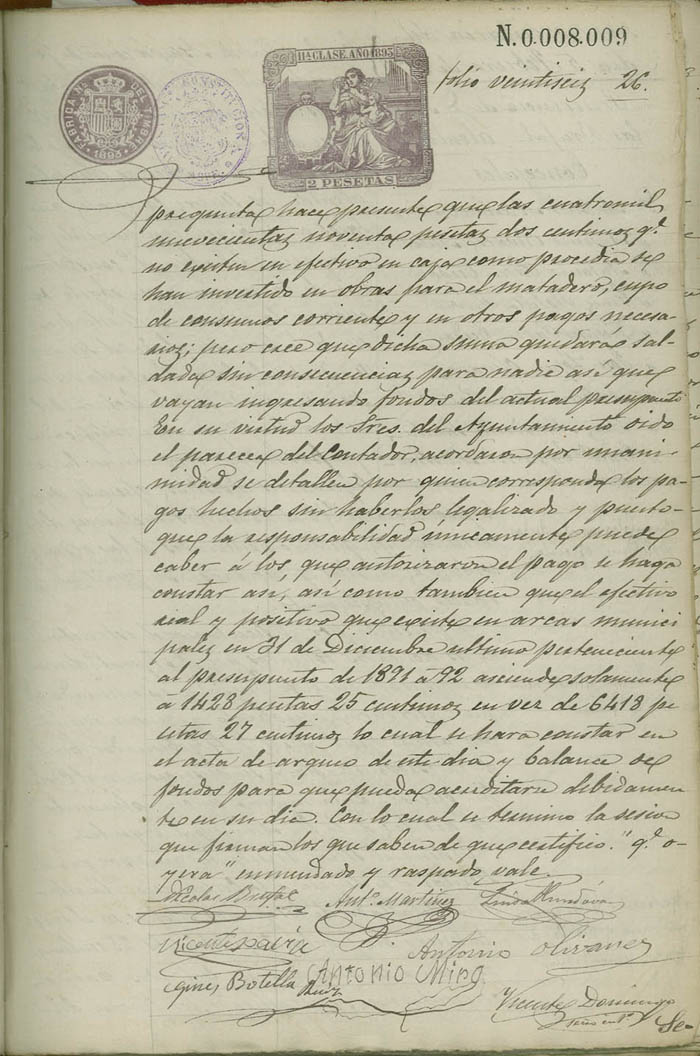 N.0.008.009
11ª CLASE. AÑO 1893
FABRICA Nᴸ DEL TIMBRE
1893
CONSTITUCION
2 PESETAS
folio veintiseis 26.
pregunta hace presente que las cuatromil
nuevecientas noventa pesetas dos centimos q.ᵉ
no existen en efectivo en caja como procedia se
han invertido en obras para el matadero, cupo
de consumos corriente y en otros pagos necesa-
rios; pero cree que dicha suma quedará sal-
dada sin consecuencias para nadie así que
vayan ingresando fondos del actual presupuesto
En su virtud los Sres. del Ayuntamiento oido
el parecer del Contador, acordaron por unani-
midad se detallen por quien corresponda los pa-
gos hechos sin haberlos legalizado y puesto
que la responsabilidad únicamente puede
caber á los que autorizaron el pago se haga
constar así, así como tambien que el efectivo
real y positivo que existe en arcas munici
pales en 31 de Diciembre ultimo perteneciente
al presupuesto de 1891 á 92 asciende solamente
á 1428 pesetas 25 centimos en vez de 6418 pe
setas 27 centimos lo cual se hara constar en
el acta de arqueo de este dia y balance de
fondos para que pueda acreditarse debidamen
te en su dia. Con lo cual se termino la sesion
que firman los que saben de que certifico. "q.ᵉ o-
yera" enmendado y raspado vale.
Nicolas Brufal Antº Martinez
Vicente Antonio Olivares
Gines Botella Antonio Miro
Vicente Domingo